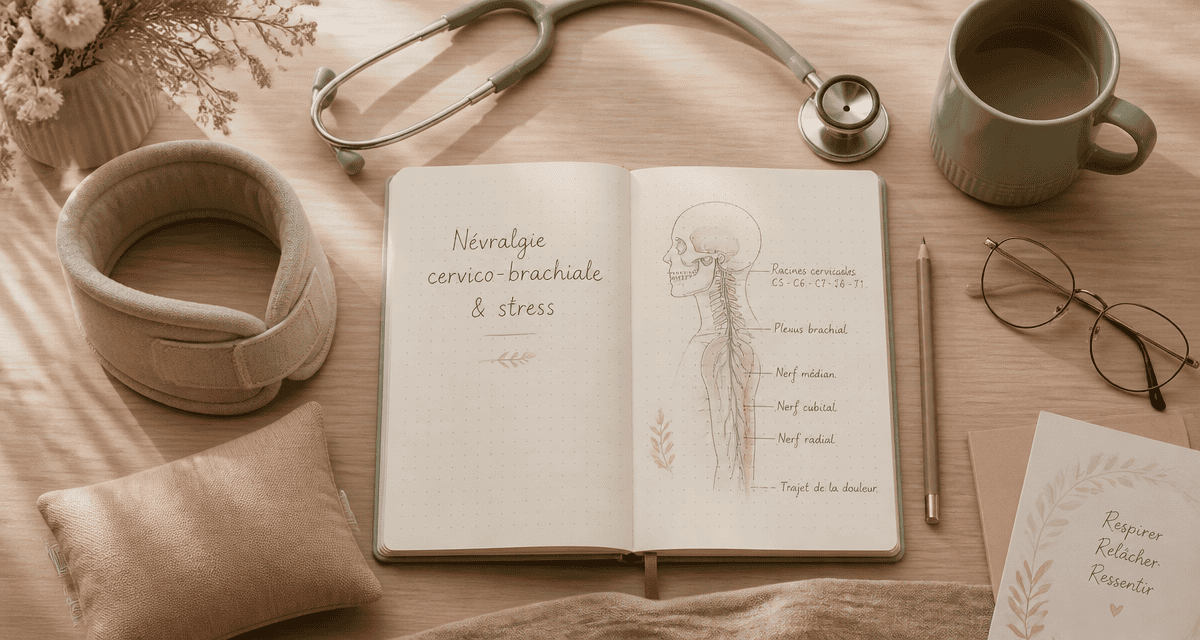 Névralgie
cervico-brachiale
& stress
Racines cervicales
C5 - C6 - C7 - J8 - J1.
Plexus brachial
Nerf médian.
Nerf cubital.
Nerf radial.
Trajet de la douleur.
Respirer
Relâcher.
Ressentir